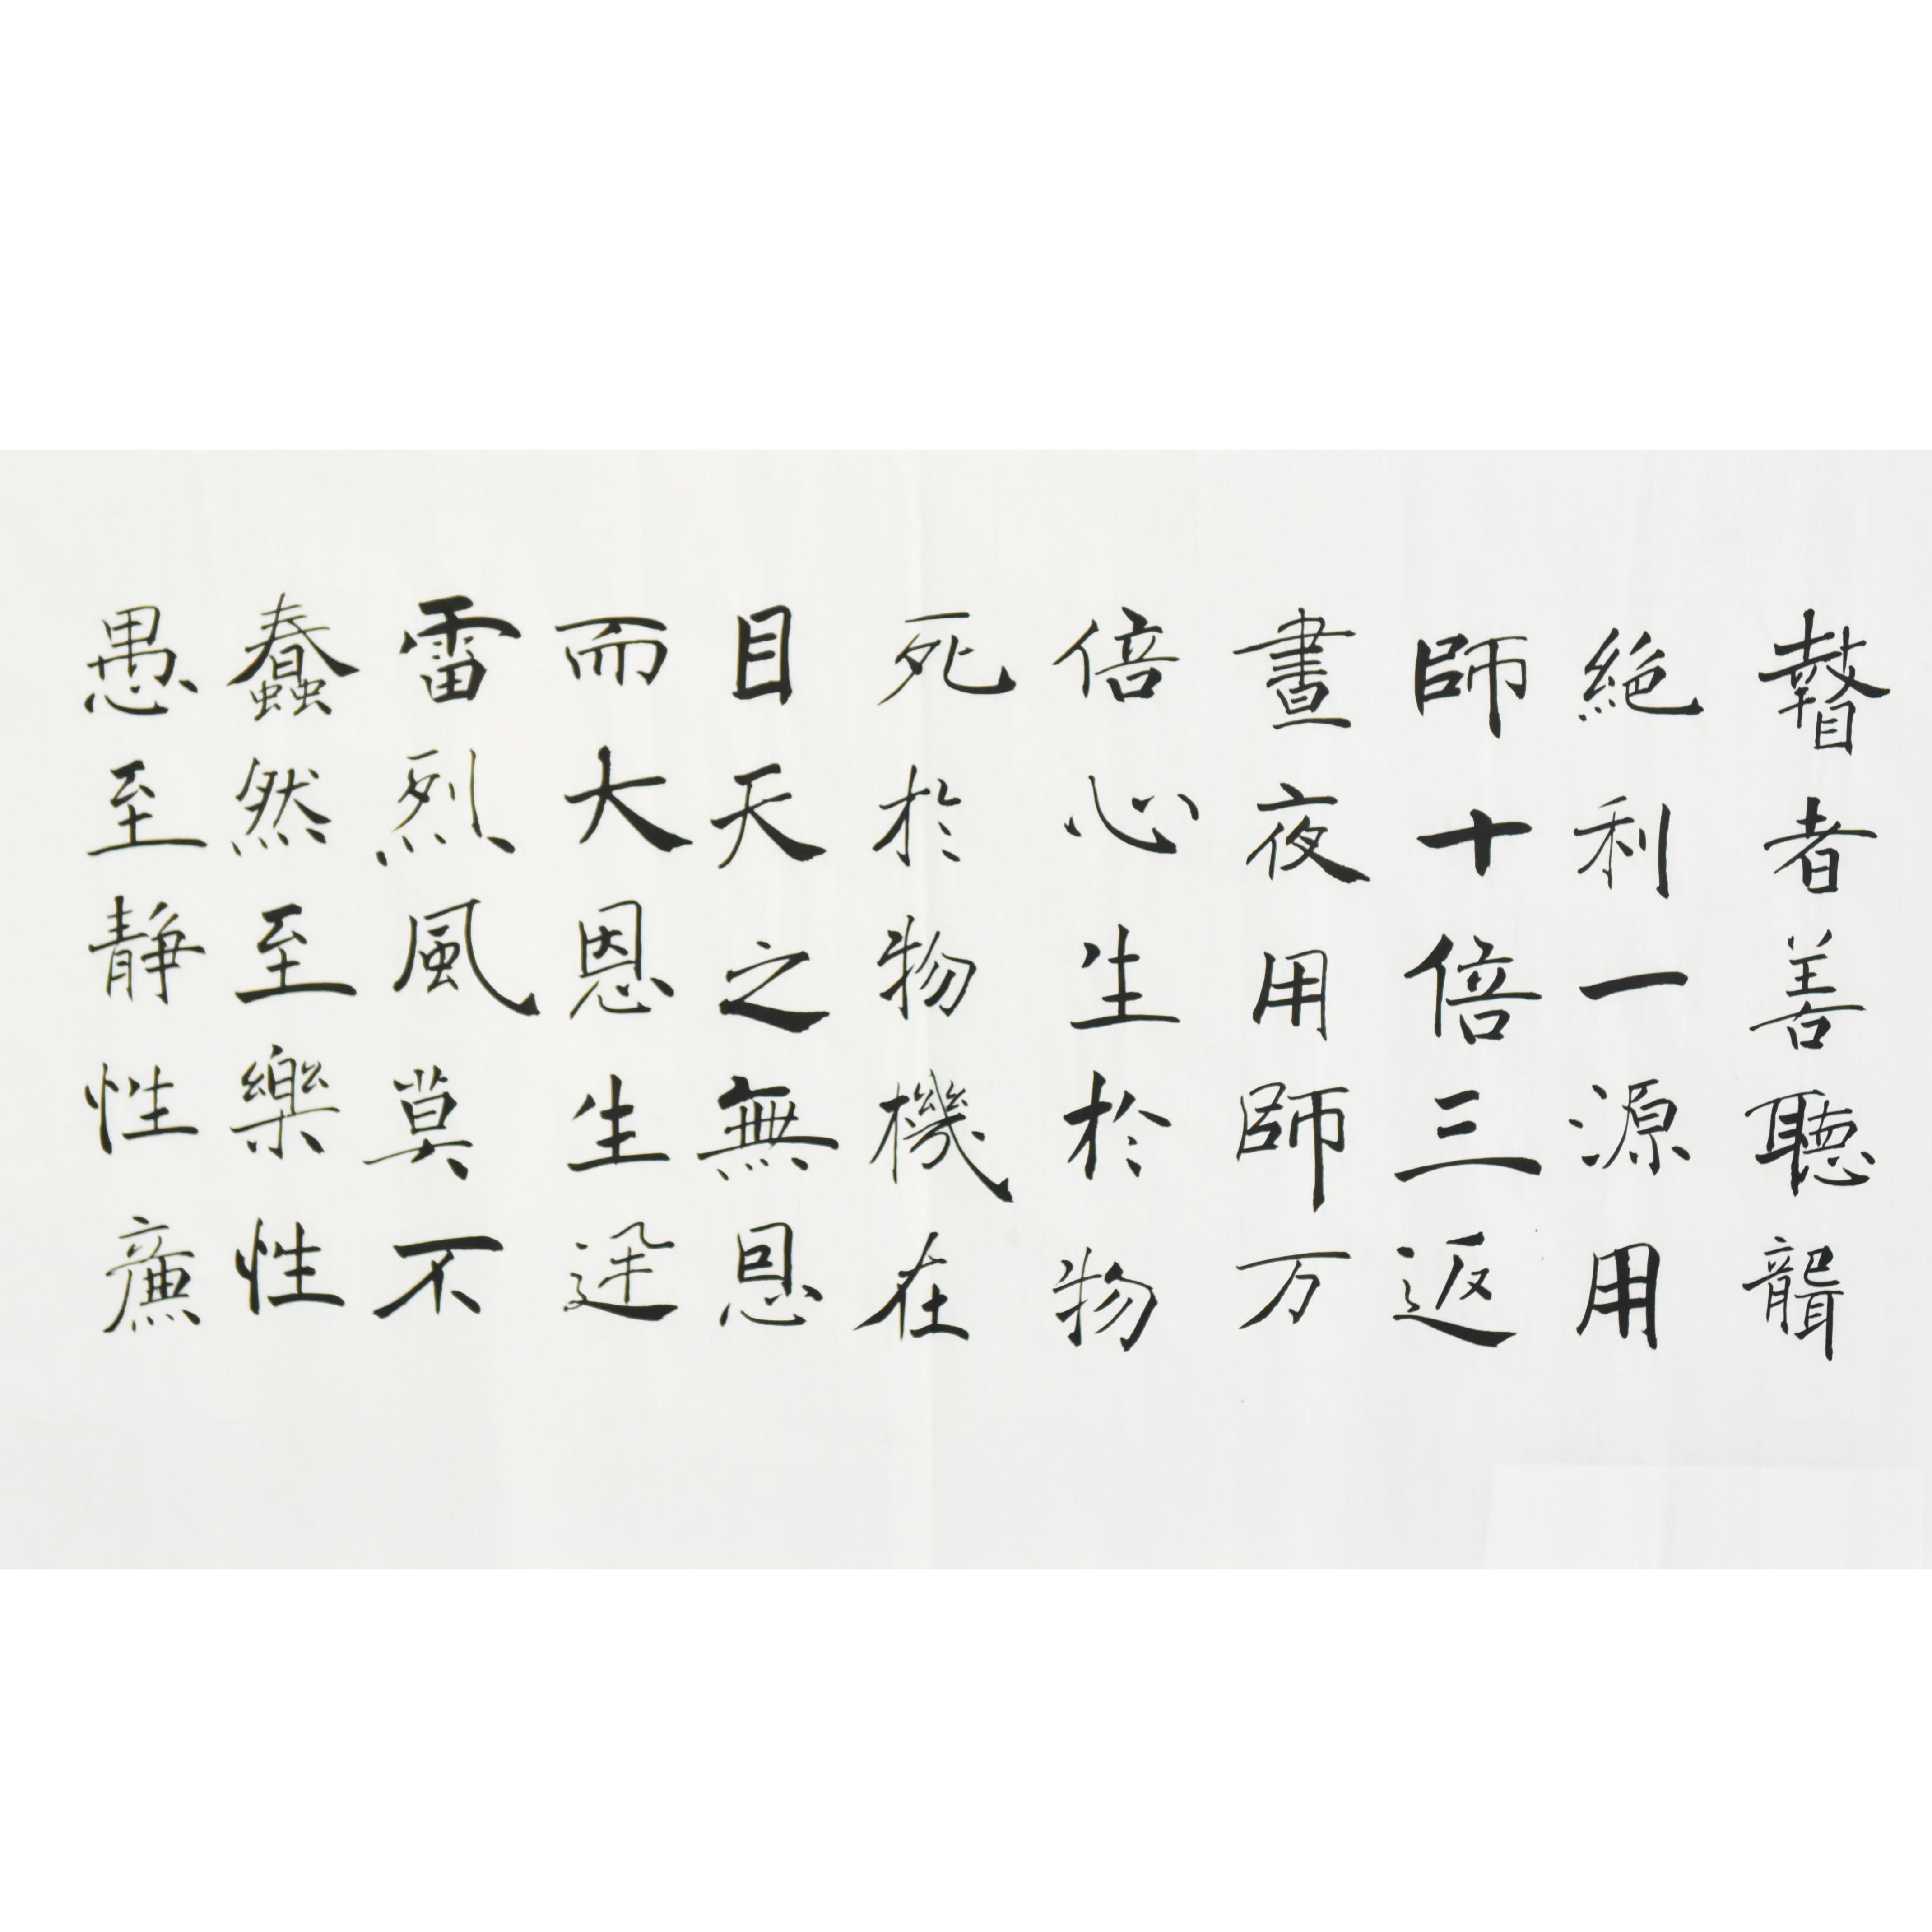 瞽者善聽聾
絶利一源用
師十倍三返
晝夜用師万
倍心生於物
死於物機在
目天之無恩
而大恩生迅
雷烈風莫不
蠢然至樂性
愚至静性廉